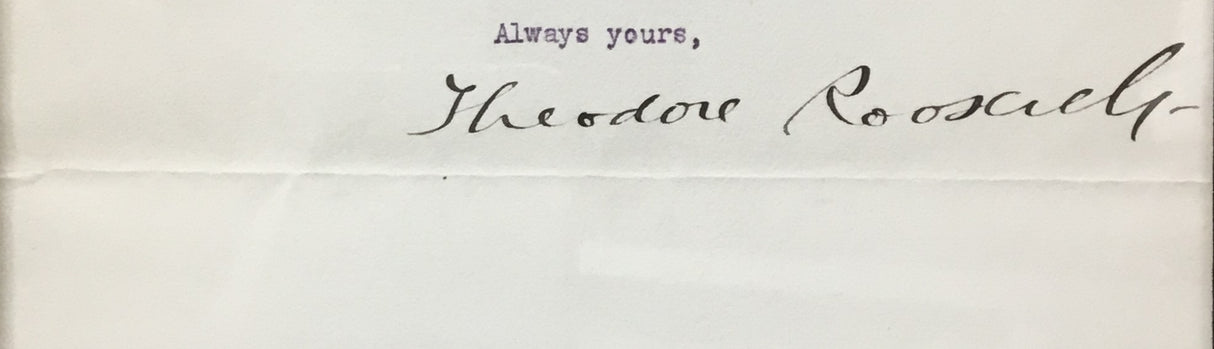 Always yours,
Theodore Roosevelt